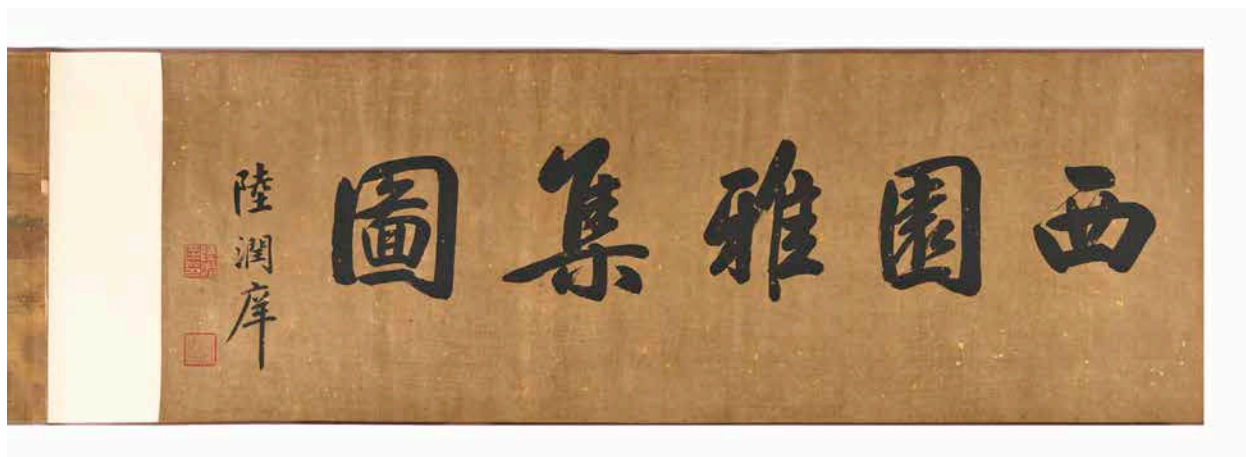 西園雅集圖
陸潤庠